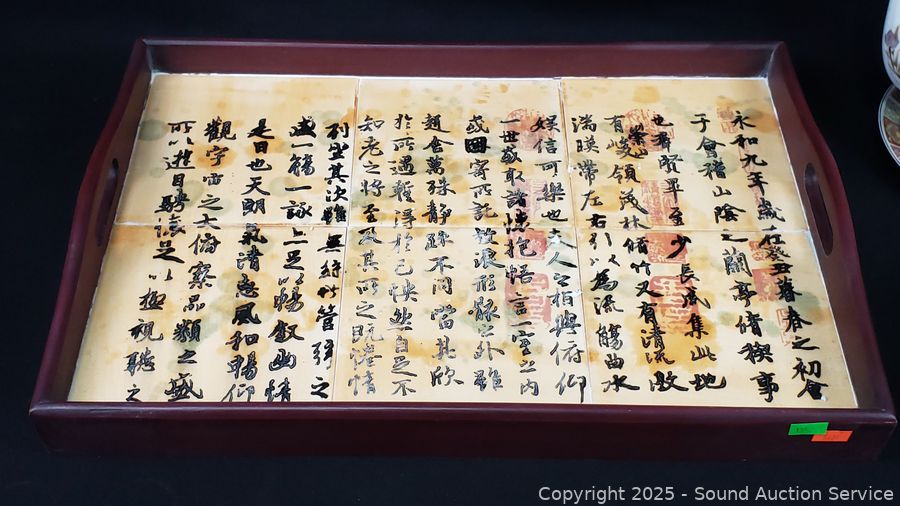 永和九年歲在癸丑暮春之初會
于會稽山陰之蘭亭脩稧事
也羣賢畢至少長咸集此地
有崇山峻領茂林脩竹又有清流激
湍暎帶左右引以為流觴曲水
娛信可樂也夫人之相與俯仰
一世或取諸懷抱悟言一室之內
或因寄所託放浪形骸之外雖
趣舍萬殊靜躁不同當其欣
於所遇暫得於己怏然自足不
知老之將至及其所之既惓情
列坐其次雖無絲竹管弦之
盛一觴一詠亦足以暢敘幽情
是日也天朗氣清惠風和暢仰
觀宇宙之大俯察品類之盛
所以遊目騁懷足以極視聽之
Copyright 2025 - Sound Auction Service